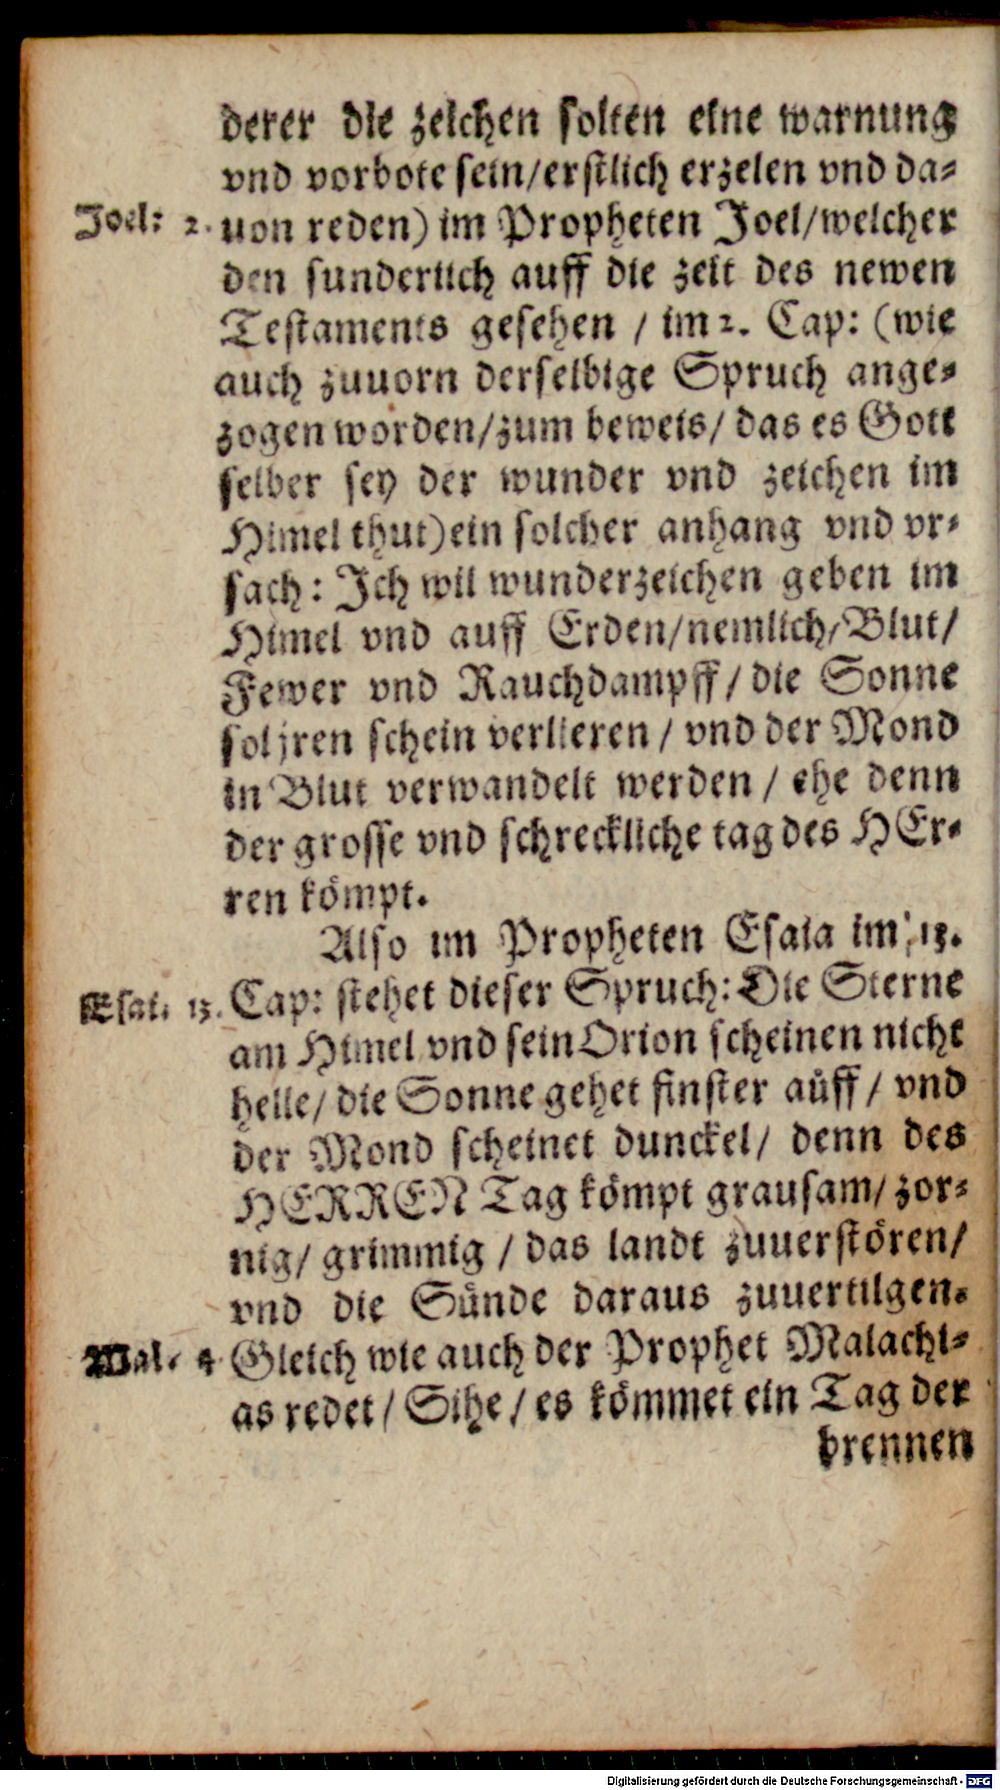 derer die zeichen solten eine warnung
vnd vorbote sein/erstlich erzelen vnd da-
Joel: 2. uon reden) im Propheten Joel/welcher
den sunderlich auff die zeit des newen
Testaments gesehen / im 2. Cap: (wie
auch zuuorn derselbige Spruch ange-
zogen worden/zum beweis/ das es Gott
selber sey der wunder vnd zeichen im
Himel thut) ein solcher anhang vnd vr-
sach: Ich wil wunderzeichen geben im
Himel vnd auff Erden/nemlich/Blut/
Fewer vnd Rauchdampff/ die Sonne
sol jren schein verlieren / vnd der Mond
in Blut verwandelt werden / ehe denn
der grosse vnd schreckliche tag des HEr-
ren kömpt.
Also im Propheten Esaia im 13.
Esai. 13. Cap: stehet dieser Spruch: Die Sterne
am Himel vnd sein Orion scheinen nicht
helle/ die Sonne gehet finster auff / vnd
der Mond scheinet dunckel/ denn des
HERREN Tag kömpt grausam/ zor-
nig/ grimmig / das landt zuuerstören/
vnd die Sünde daraus zuuertilgen.
Mal. 4 Gleich wie auch der Prophet Malachi-
as redet / Sihe / es kömmet ein Tag der
brennen
Digitalisierung gefördert durch die Deutsche Forschungsgemeinschaft - DFG